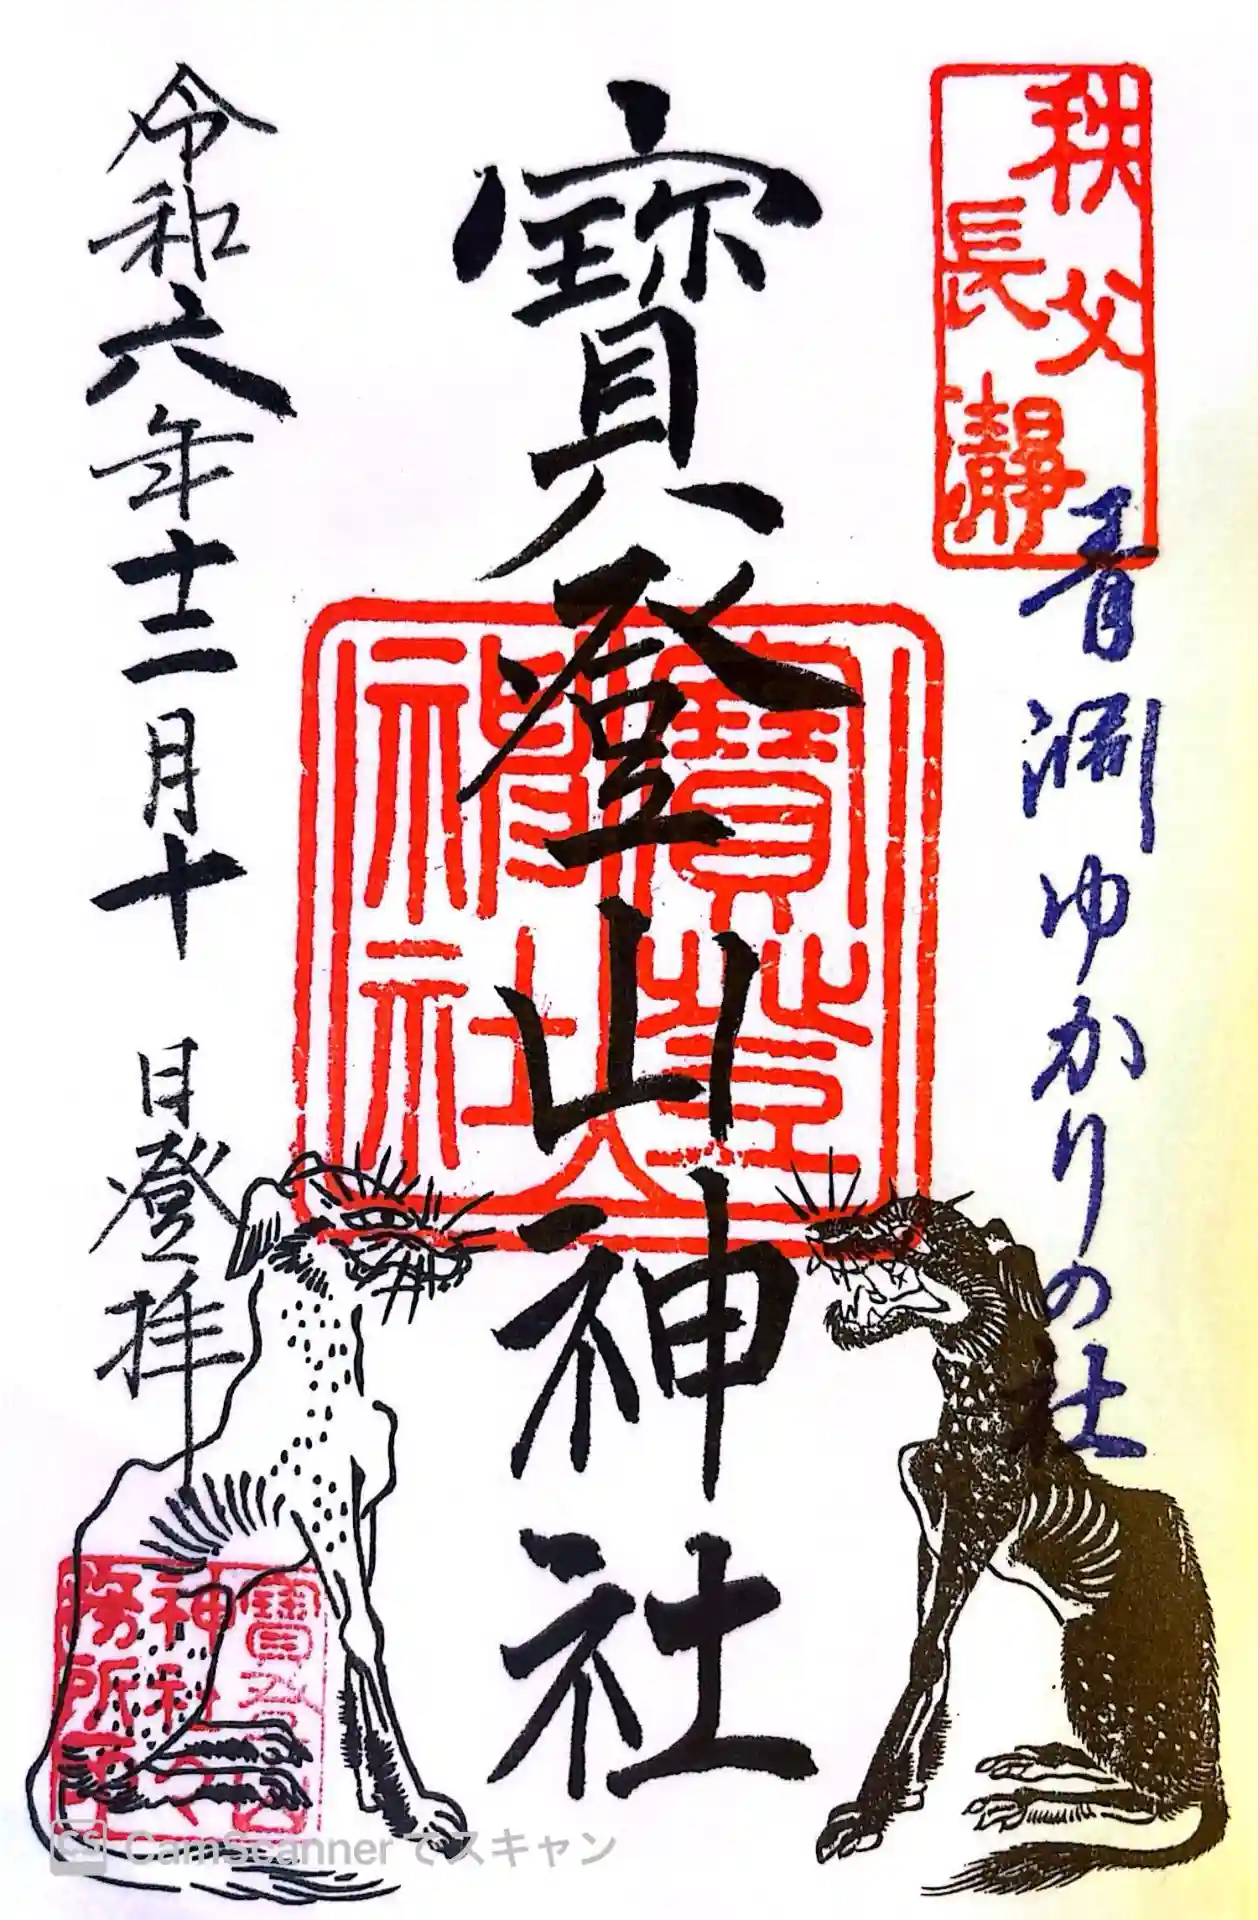 秩父
長瀞
青淵ゆかりの社
寳登山神社
寳登山
神社
令和六年十二月十日登拝
寳登山
神社
務所印
CamScannerでスキャン